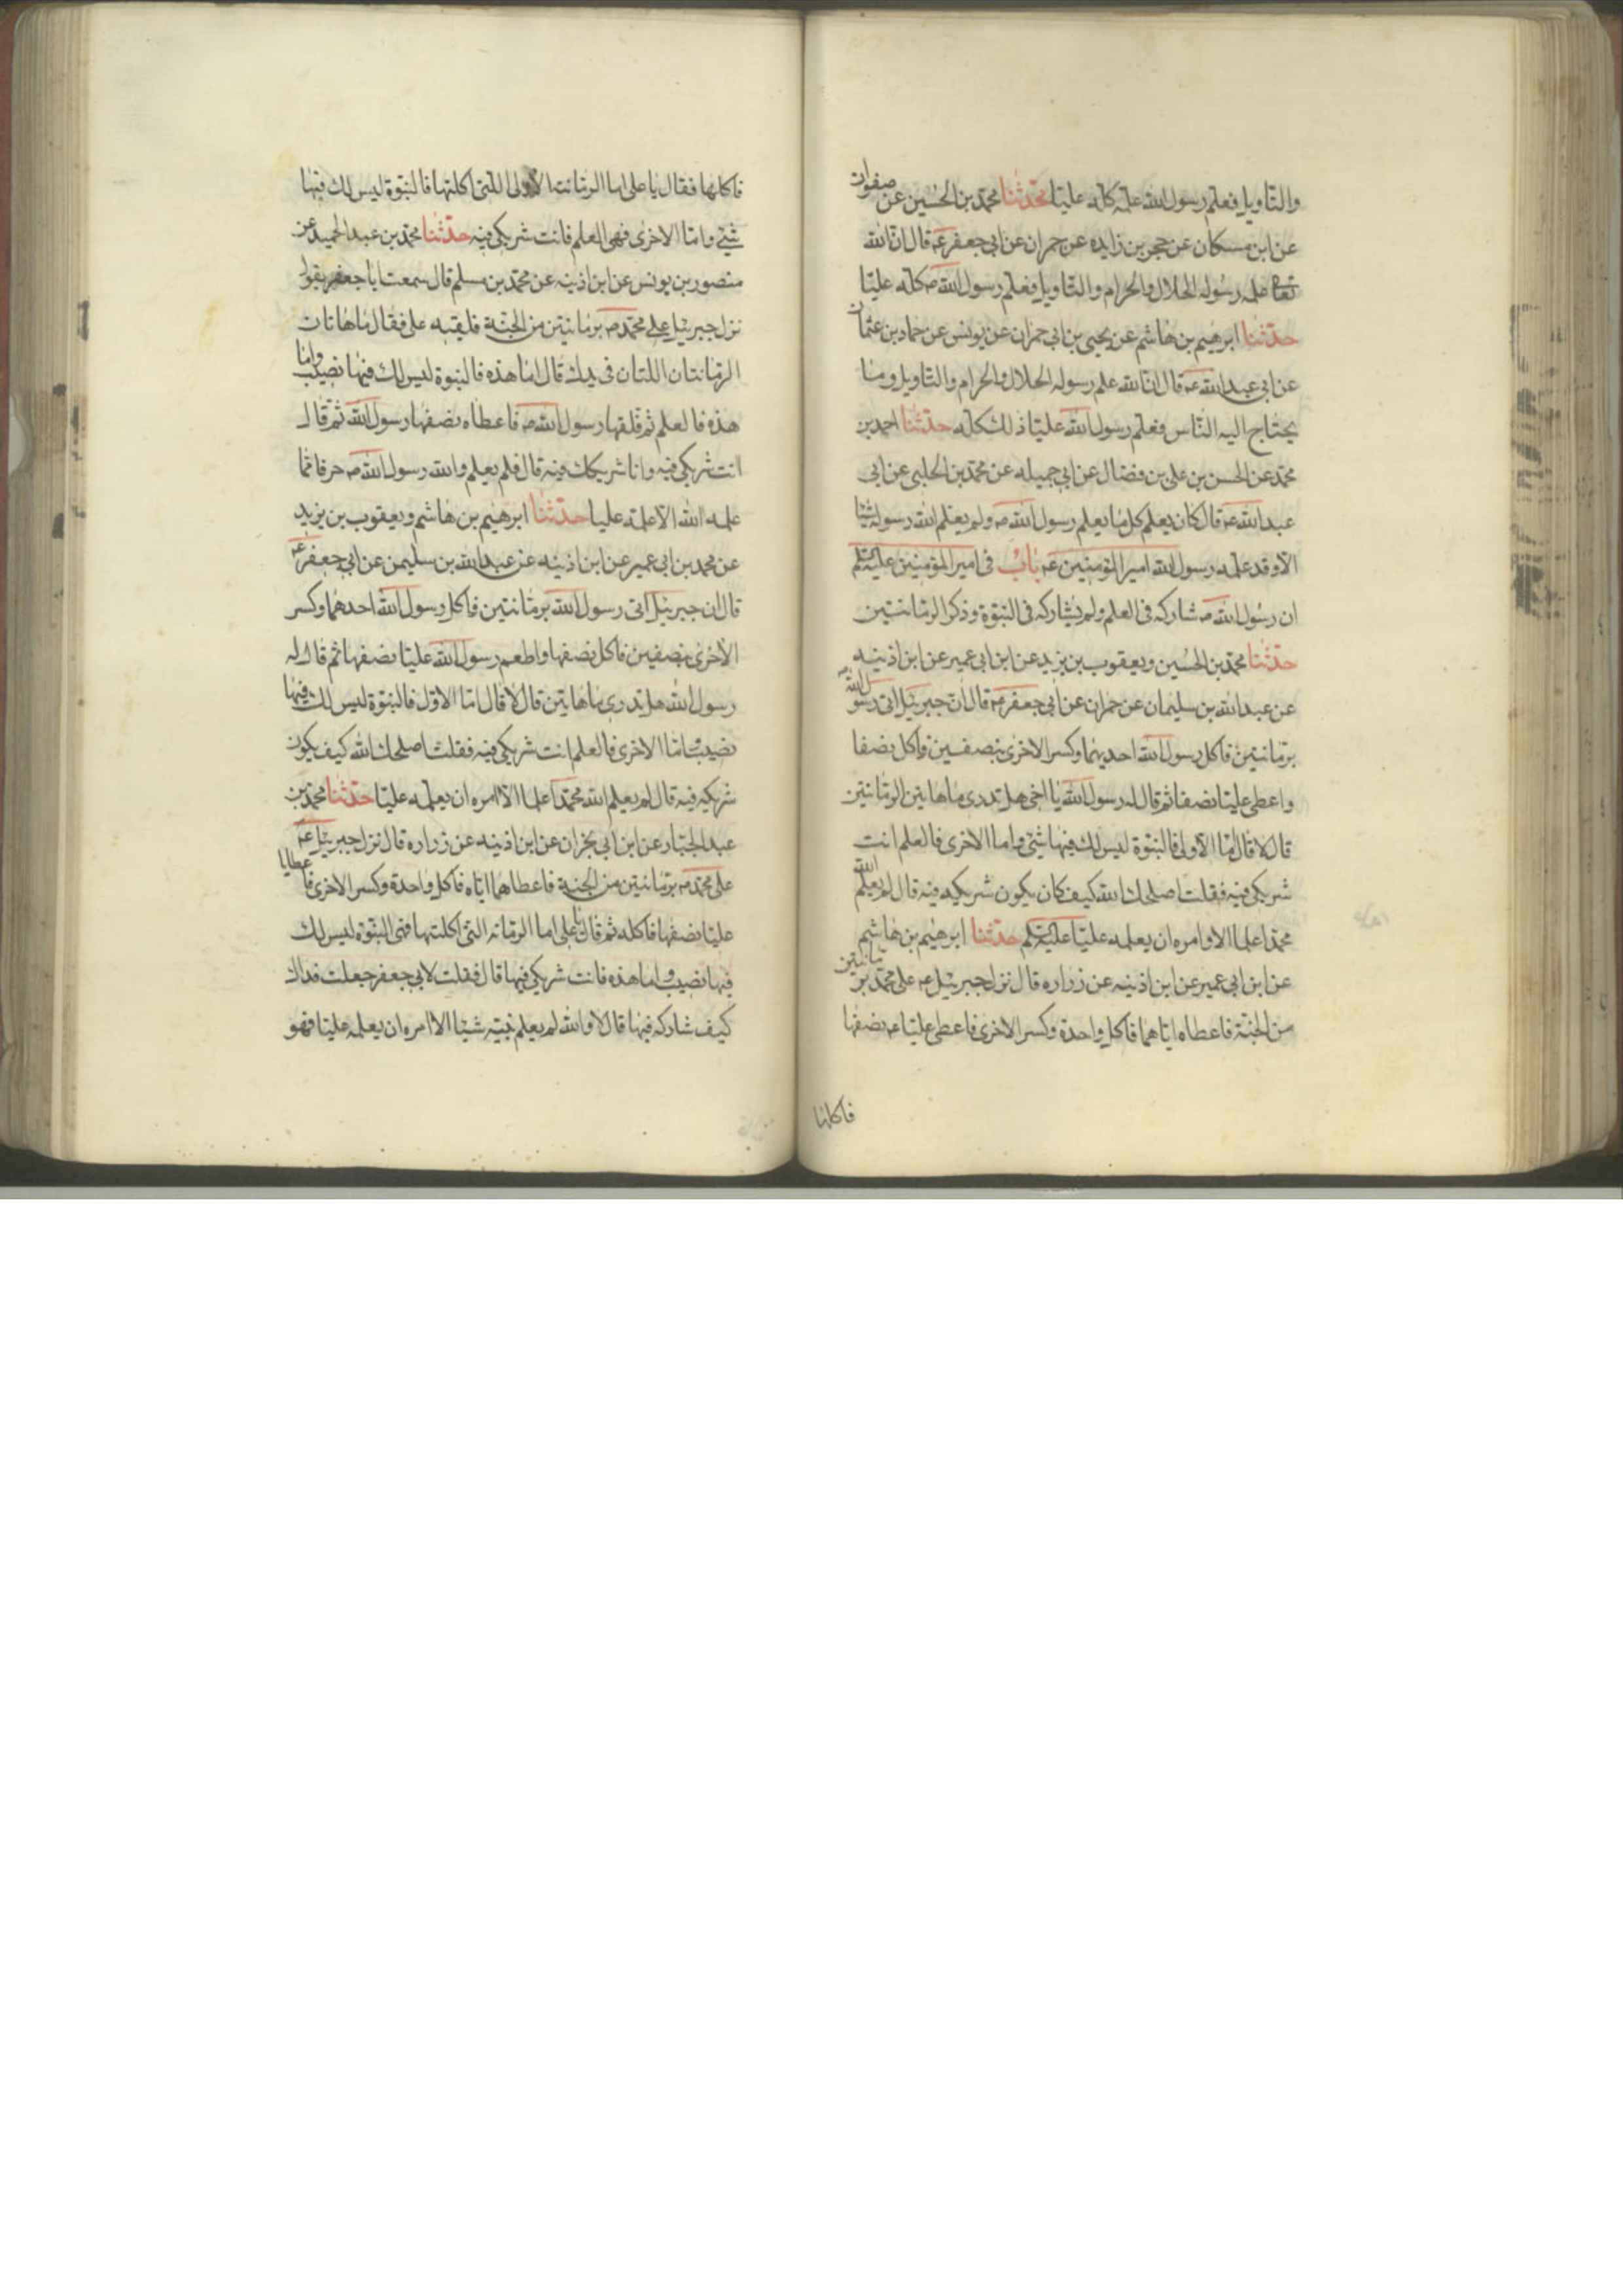 والتاويل فعلم رسول الله علمه كله عليّا حدّثنا محمّد بن الحُسين عن صفوان
عن ابن مسكان عن حجر بن زايده عن حمران عن ابي جعفر ع قال ان الله
تعالى علم رسوله الحلال والحرام والتاويل فعلم رسول الله ص كله عليّا
حدّثنا ابرهيم بن هاشم عن يحيى بن ابي عمران عن يونس عن حماد بن عثمان
عن ابي عبد الله ع قال ان الله علم رسوله الحلال والحرام والتاويل وما
يحتاج اليه النّاس فعلم رسول الله عليّا ذلك كله حدّثنا احمد بن
محمّد عن الحسن بن علي بن فضال عن ابي جميله عن محمّد بن الحلبي عن ابي
عبد الله ع قال كان يعلم كل ما يعلم رسول الله ص ولم يعلم الله رسوله شيئا
الا وقد علمه رسول الله امير المؤمنين ع باب في امير المؤمنين عليه السلم
ان رسول الله ص شاركه في العلم ولم يشاركه في النبوّة وذكر الرمانتين
حدّثنا محمّد بن الحُسين ويعقوب بن يزيد عن ابن ابي عمير عن ابن اذينه
عن عبد الله بن سليمان عن حمران عن ابي جعفر ع قال ان جبرئيل اتى رسول الله ص
برمّانتين فاكل رسول الله احديهما وكسر الاخرى بنصفين فاكل نصفا
واعطى عليّا نصفا ثم قال له رسول الله يا اخي هل تدري ما هاتين الرمّانتين
قال لا قال امّا الاولى فالنبوّة ليس لك فيها شئ واما الاخرى فالعلم انت
شريكي فيه فقلت اصلحك الله كيف كان يكون شريكه فيه قال لم يعلم الله
محمّدا علما الا وامره ان يعلمه عليّا عليه السلم حدّثنا ابرهيم بن هاشم
عن ابن ابي عمير عن ابن اذينه عن زراره قال نزل جبرئيل ع على محمّد برمانتين
من الجنّة فاعطاه اياهما فاكل واحدة وكسر الاخرى فاعطى عليّا ع نصفها
فاكلها
فاكلها فقال يا علي اما الرمّانة الاولى اللتي اكلتها فالنبوّة ليس لك فيها
شئ وامّا الاخرى فهي العلم فانت شريكي فيه حدّثنا محمّد بن عبد الحميد عن
منصور بن يونس عن ابن اذينه عن محمّد بن مسلم قال سمعت ابا جعفر يقول
نزل جبرئيل على محمّد ص برمانتين من الجنّة فلقيه علي فقال ما هاتان
الرمّانتان اللتان في يدك قال امّا هذه فالنبوة ليس لك فيها نصيب واما
هذه فالعلم ثم فلقها رسول الله ص فاعطاه نصفها رسول الله ثم قال
انت شريكي فيه وانا شريكك فيه قال فلم يعلم والله رسول الله ص حرفا مما
علمه الله الا علمه عليا حدّثنا ابرهيم بن هاشم ويعقوب بن يزيد
عن محمد بن ابي عمير عن ابن اذينه عن عبد الله بن سليمن عن ابي جعفر ع
قال ان جبرئيل اتى رسول الله برمّانتين فاكل رسول الله احدهما وكسر
الاخرى بنصفين فاكل نصفها واطعم رسول الله عليّا نصفها ثم قال له
رسول الله هل تدري ما هاتين قال لا قال امّا الاوّل فالنبوّة ليس لك فيها
نصيب وامّا الاخرى فالعلم انت شريكي فيه فقلت اصلحك الله كيف يكون
شريكه فيه قال لم يعلم الله محمّدا علما الا امره ان يعلمه عليّا حدّثنا محمّد بن
عبد الجبّار عن ابن ابي نجران عن ابن اذينه عن زراره قال نزل جبرئيل ع
على محمّد ص برمّانتين من الجنة فاعطاهما اياه فاكل واحدة وكسر الاخرى فاعطا
عليّا نصفها فاكله ثم قال يا علي اما الرمّانه التي اكلتها فهي النبوّه ليس لك
فيها نصيب واما هذه فانت شريكي فيها قال فقلت لابي جعفر جعلت فداك
كيف شاركه فيها قال لا والله لم يعلم نبيّه شيئا الا امره ان يعلمه عليّا فهو